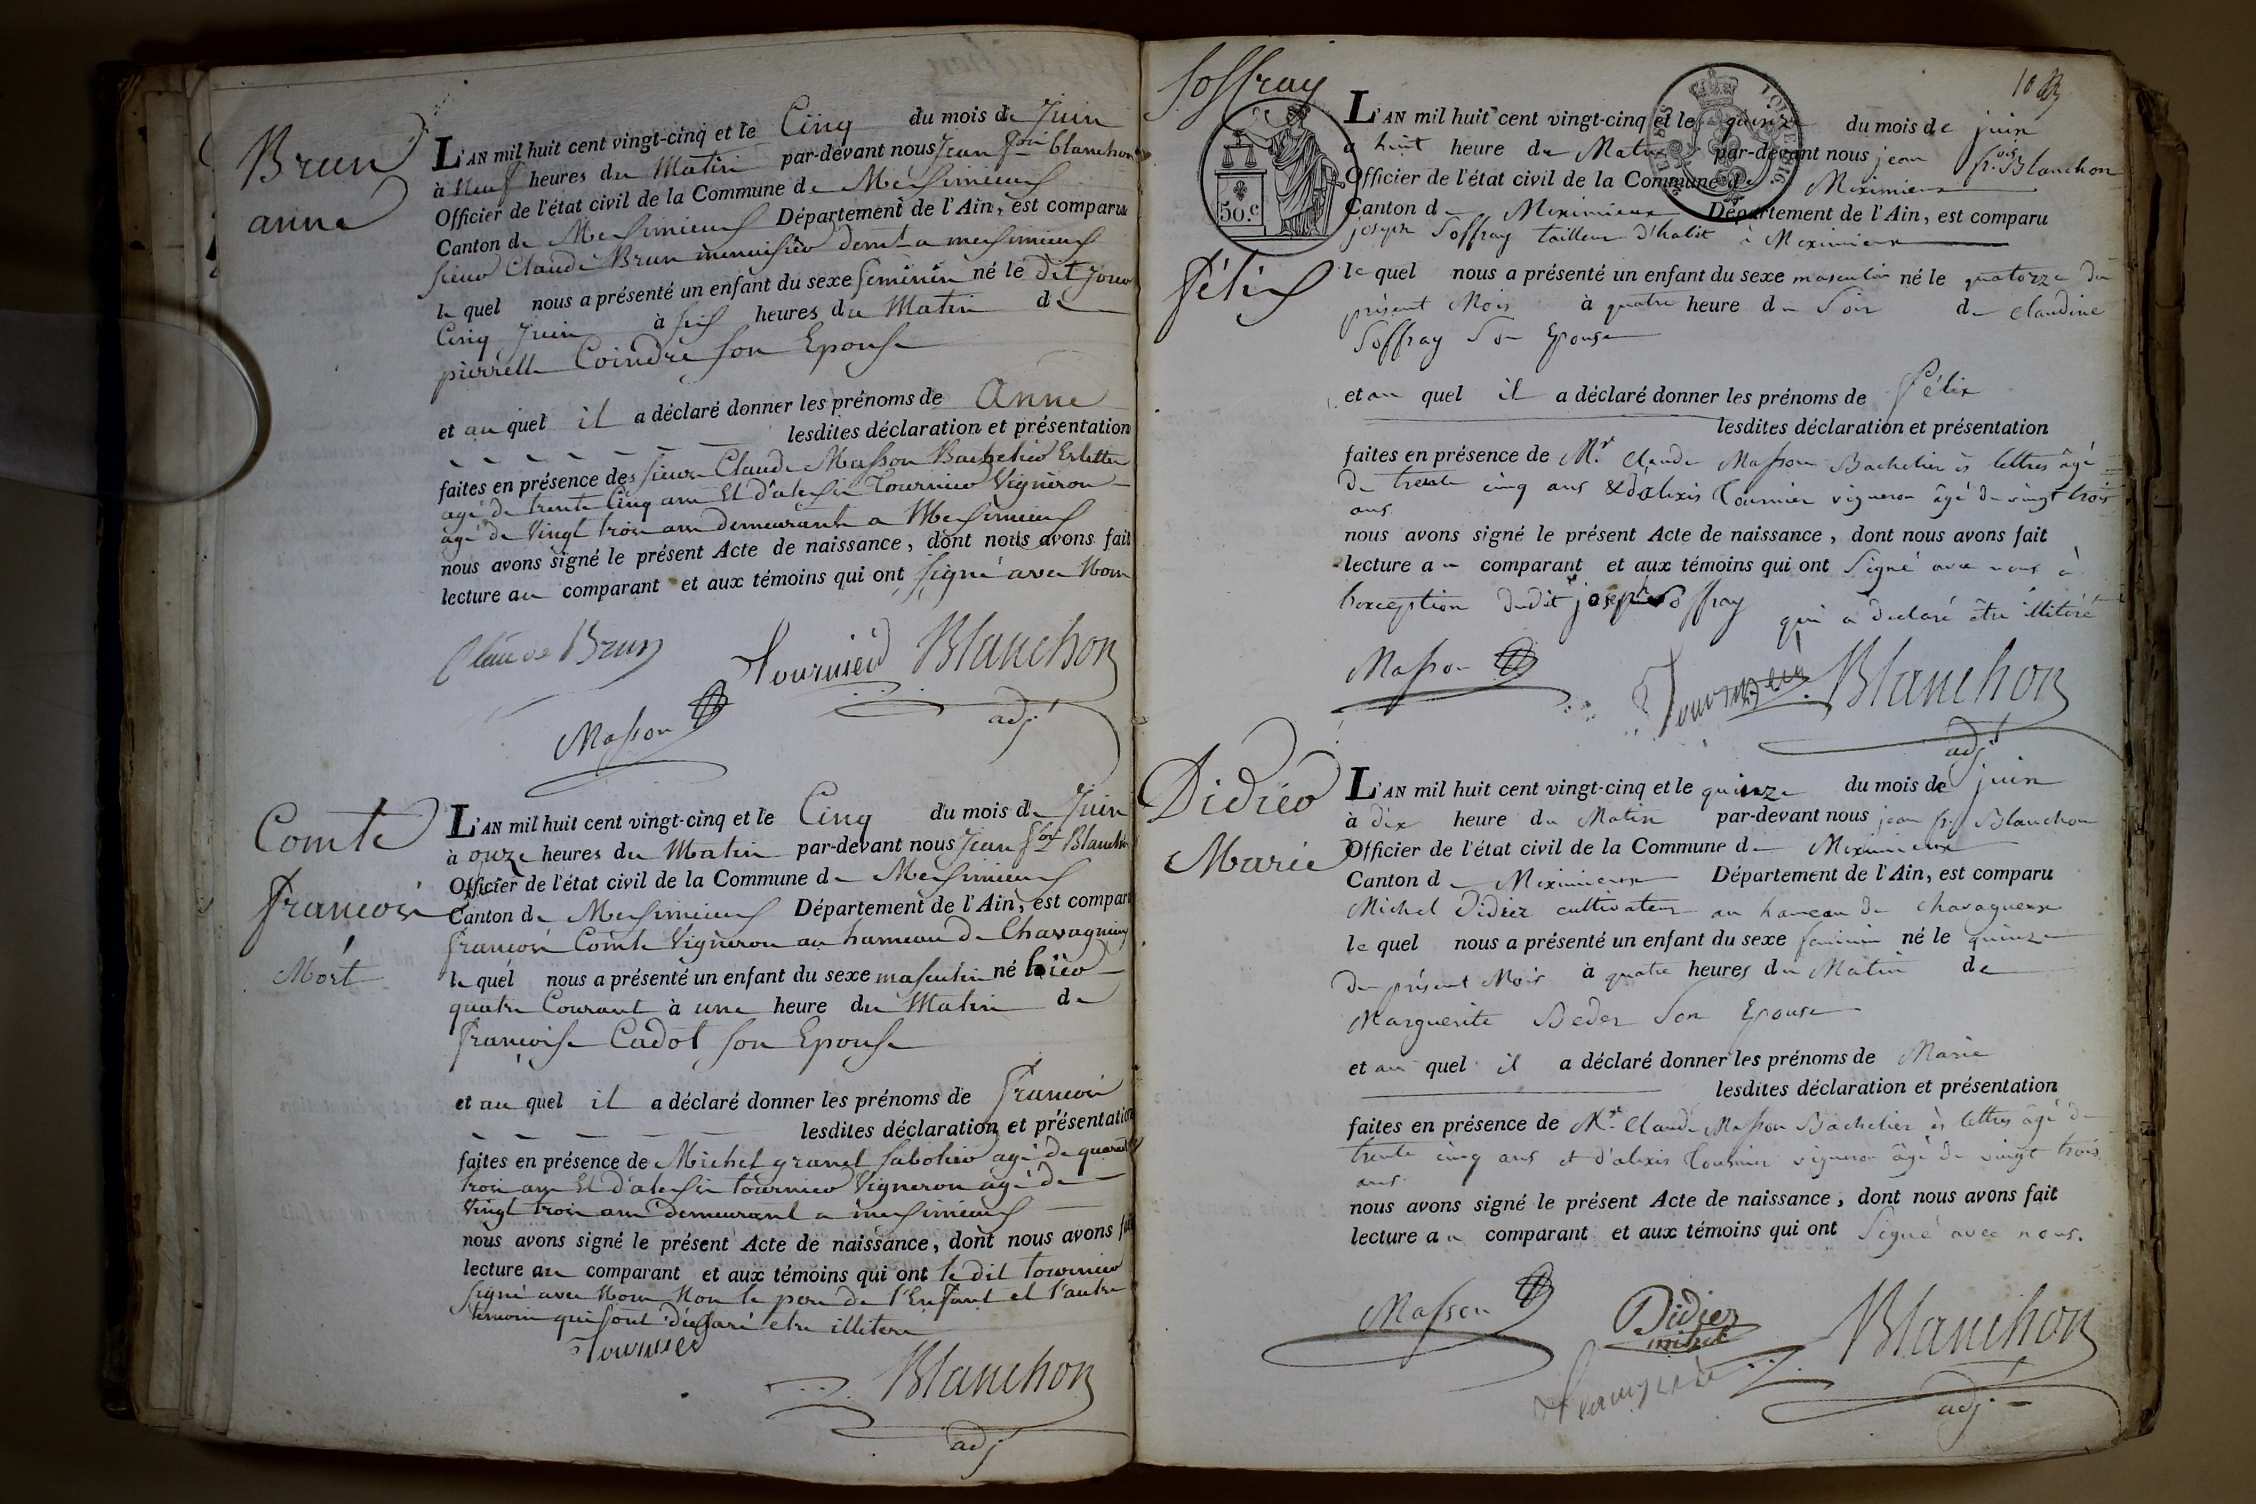 Brun
anne
L'AN mil huit cent vingt-cinq et le Cinq du mois de Juin
à Neuf heures du Matin par-devant nous Jean fois blanchon
Officier de l'état civil de la Commune de Meximieux
Canton de Meximieux Département de l'Ain, est comparu
sieur Claude Brun menuisier demt a meximieux
le quel nous a présenté un enfant du sexe feminin né le dit jour
Cinq Juin à six heures du Matin de
pierrette Coindre son Epouse
et au quel il a déclaré donner les prénoms de Anne
lesdites déclaration et présentation
faites en présence des sieurs Claude Masson Bachelier Eslettre
agé de trente Cinq ans Et d'alexis Tournier Vigneron
agé de Vingt trois ans demeurants a Meximieux
nous avons signé le présent Acte de naissance, dont nous avons fait
lecture au comparant et aux témoins qui ont signé avec Nous
Claude Brun Tournier Blanchon
Masson adjt
Comte
francois
Mort
L'AN mil huit cent vingt-cinq et le Cinq du mois de Juin
à onze heures du Matin par-devant nous Jean fois Blanchon
Officier de l'état civil de la Commune de Meximieux
Canton de Meximieux Département de l'Ain, est comparu
françois Comte Vigneron au hameau de Chavagnieux
le quel nous a présenté un enfant du sexe masculin né hier
quatre Courant à une heure du Matin de
françoise Cadot son Epouse
et au quel il a déclaré donner les prénoms de francois
lesdites déclaration et présentation
faites en présence de Michel granel sabotier agé de quarante
trois ans Et d'alexis tournier Vigneron agé de
Vingt trois ans demeurant a meximieux
nous avons signé le présent Acte de naissance, dont nous avons fait
lecture au comparant et aux témoins qui ont le dit tournier
signé avec Nous Non le pere de l'Enfant et l'autre
temoin qui sont déclaré etre illitere
Tournier
Blanchon
adjt
Soffray
félix
50.c
1816
10
L'AN mil huit cent vingt-cinq et le quinze du mois de juin
a huit heure du Matin par-devant nous jean fr.ois Blanchon
Officier de l'état civil de la Commune de Meximieux
Canton de Meximieux Département de l'Ain, est comparu
joseph Soffray tailleur d'habit à Meximieux
le quel nous a présenté un enfant du sexe masculin né le quatorze du
présent Mois à quatre heure du Soir de claudine
Soffray Son Epouse
et au quel il a déclaré donner les prénoms de félix
lesdites déclaration et présentation
faites en présence de Mr. Claude Masson Bachelier ès lettres âgé
De trente cinq ans & d'alexis Tournier vigneron âgé de vingt trois
ans
nous avons signé le présent Acte de naissance, dont nous avons fait
lecture au comparant et aux témoins qui ont Signé avec nous à
l'exception dudit joseph Soffray qui a déclaré être illitéré
Masson Tournier Blanchon
adjt
Didier
Marie
L'AN mil huit cent vingt-cinq et le quinze du mois de juin
à dix heure du Matin par-devant nous jean fr. Blanchon
Officier de l'état civil de la Commune de Meximieux
Canton de Meximieux Département de l'Ain, est comparu
Michel Didier cultivateur au hameau de chavagneux
le quel nous a présenté un enfant du sexe feminin né le quinze
du présent Mois à quatre heures du Matin de
Marguerite Beder Son Epouse
et au quel il a déclaré donner les prénoms de Marie
lesdites déclaration et présentation
faites en présence de Mr. Claude Masson Bachelier ès lettres âgé de
trente cinq ans et d'alexis Tournier vigneron âgé de vingt trois
ans
nous avons signé le présent Acte de naissance, dont nous avons fait
lecture au comparant et aux témoins qui ont Signé avec nous.
Masson Didier Blanchon
michel
Tournier adjt